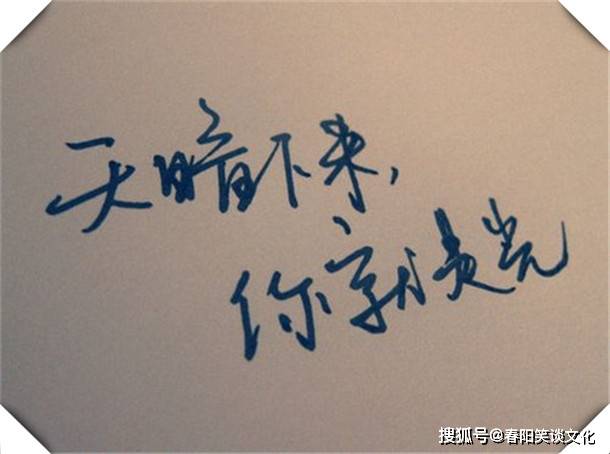 天暗下来,
你就是光
搜狐号@春阳笑谈文化